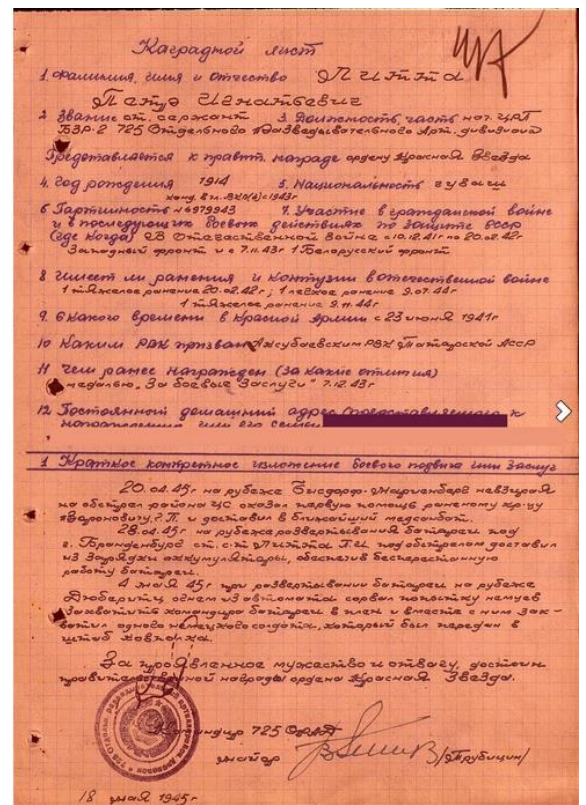 Наградной лист
1. Фамилия, имя и отчество Питта
Петр Игнатьевич
2 Звание ст. сержант 3. Должность, часть нач. ЦРП
БЗР-2 725 Отдельного Разведывательного Арт. дивизиона
Представляется к правит. награде ордену Красная Звезда
4. Год рождения 1914 5. Национальность чуваш
канд. вчл. ВКП(б) с 1943г
6 Партийность №6979943 7. Участие в гражданской войне
и в последующих боевых действиях по защите СССР
(где когда) В Отечественной войне с 10.12.41г по 20.02.42г
Западный фронт и с 7.11.43г 1 Белорусский фронт
8 Имеет ли ранения и контузии в отечественной войне
1 тяжелое ранение 20.02.42г; 1 легкое ранение 9.07.44г
1 тяжелое ранение 9.11.44г
9. С какого времени в Красной Армии с 23 июня 1941г
10 Каким РВК призван Аксубаевским РВК Татарской АССР
11 Чем ранее награжден (за какие отличия)
медалью "За боевые заслуги" 7.12.43г
12 Постоянный домашний адрес представляемого к
награждению или его семьи
1 Краткое конкретное изложение боевого подвига или заслуг
20.04.45г на рубеже Бисдорф-Мариенберг невзирая
на обстрел района ЦС оказал первую помощь раненому кр-цу
Вароновичу, Г.П. и доставил в ближайший медсанбат.
28.04.45г на рубеже развертывания батареи под
г. Бранденбург ст. с-т Питта П.И под обстрелом доставил
из зарядки аккумуляторы, обеспечив бесперестанную
работу батареи.
4 мая 45г при развертывании батареи на рубеже
Дюберитц огнем из автомата сорвал попытку немцев
захватить командира батареи в плен и вместе с ним зах-
ватил одного немецкого солдата, который был передан в
штаб
За проявленное мужество и отвагу, достоин
правительственной награды ордена Красная Звезда.
Командир 725 ОРАД
майор /Трубицин/
18 мая 1945г